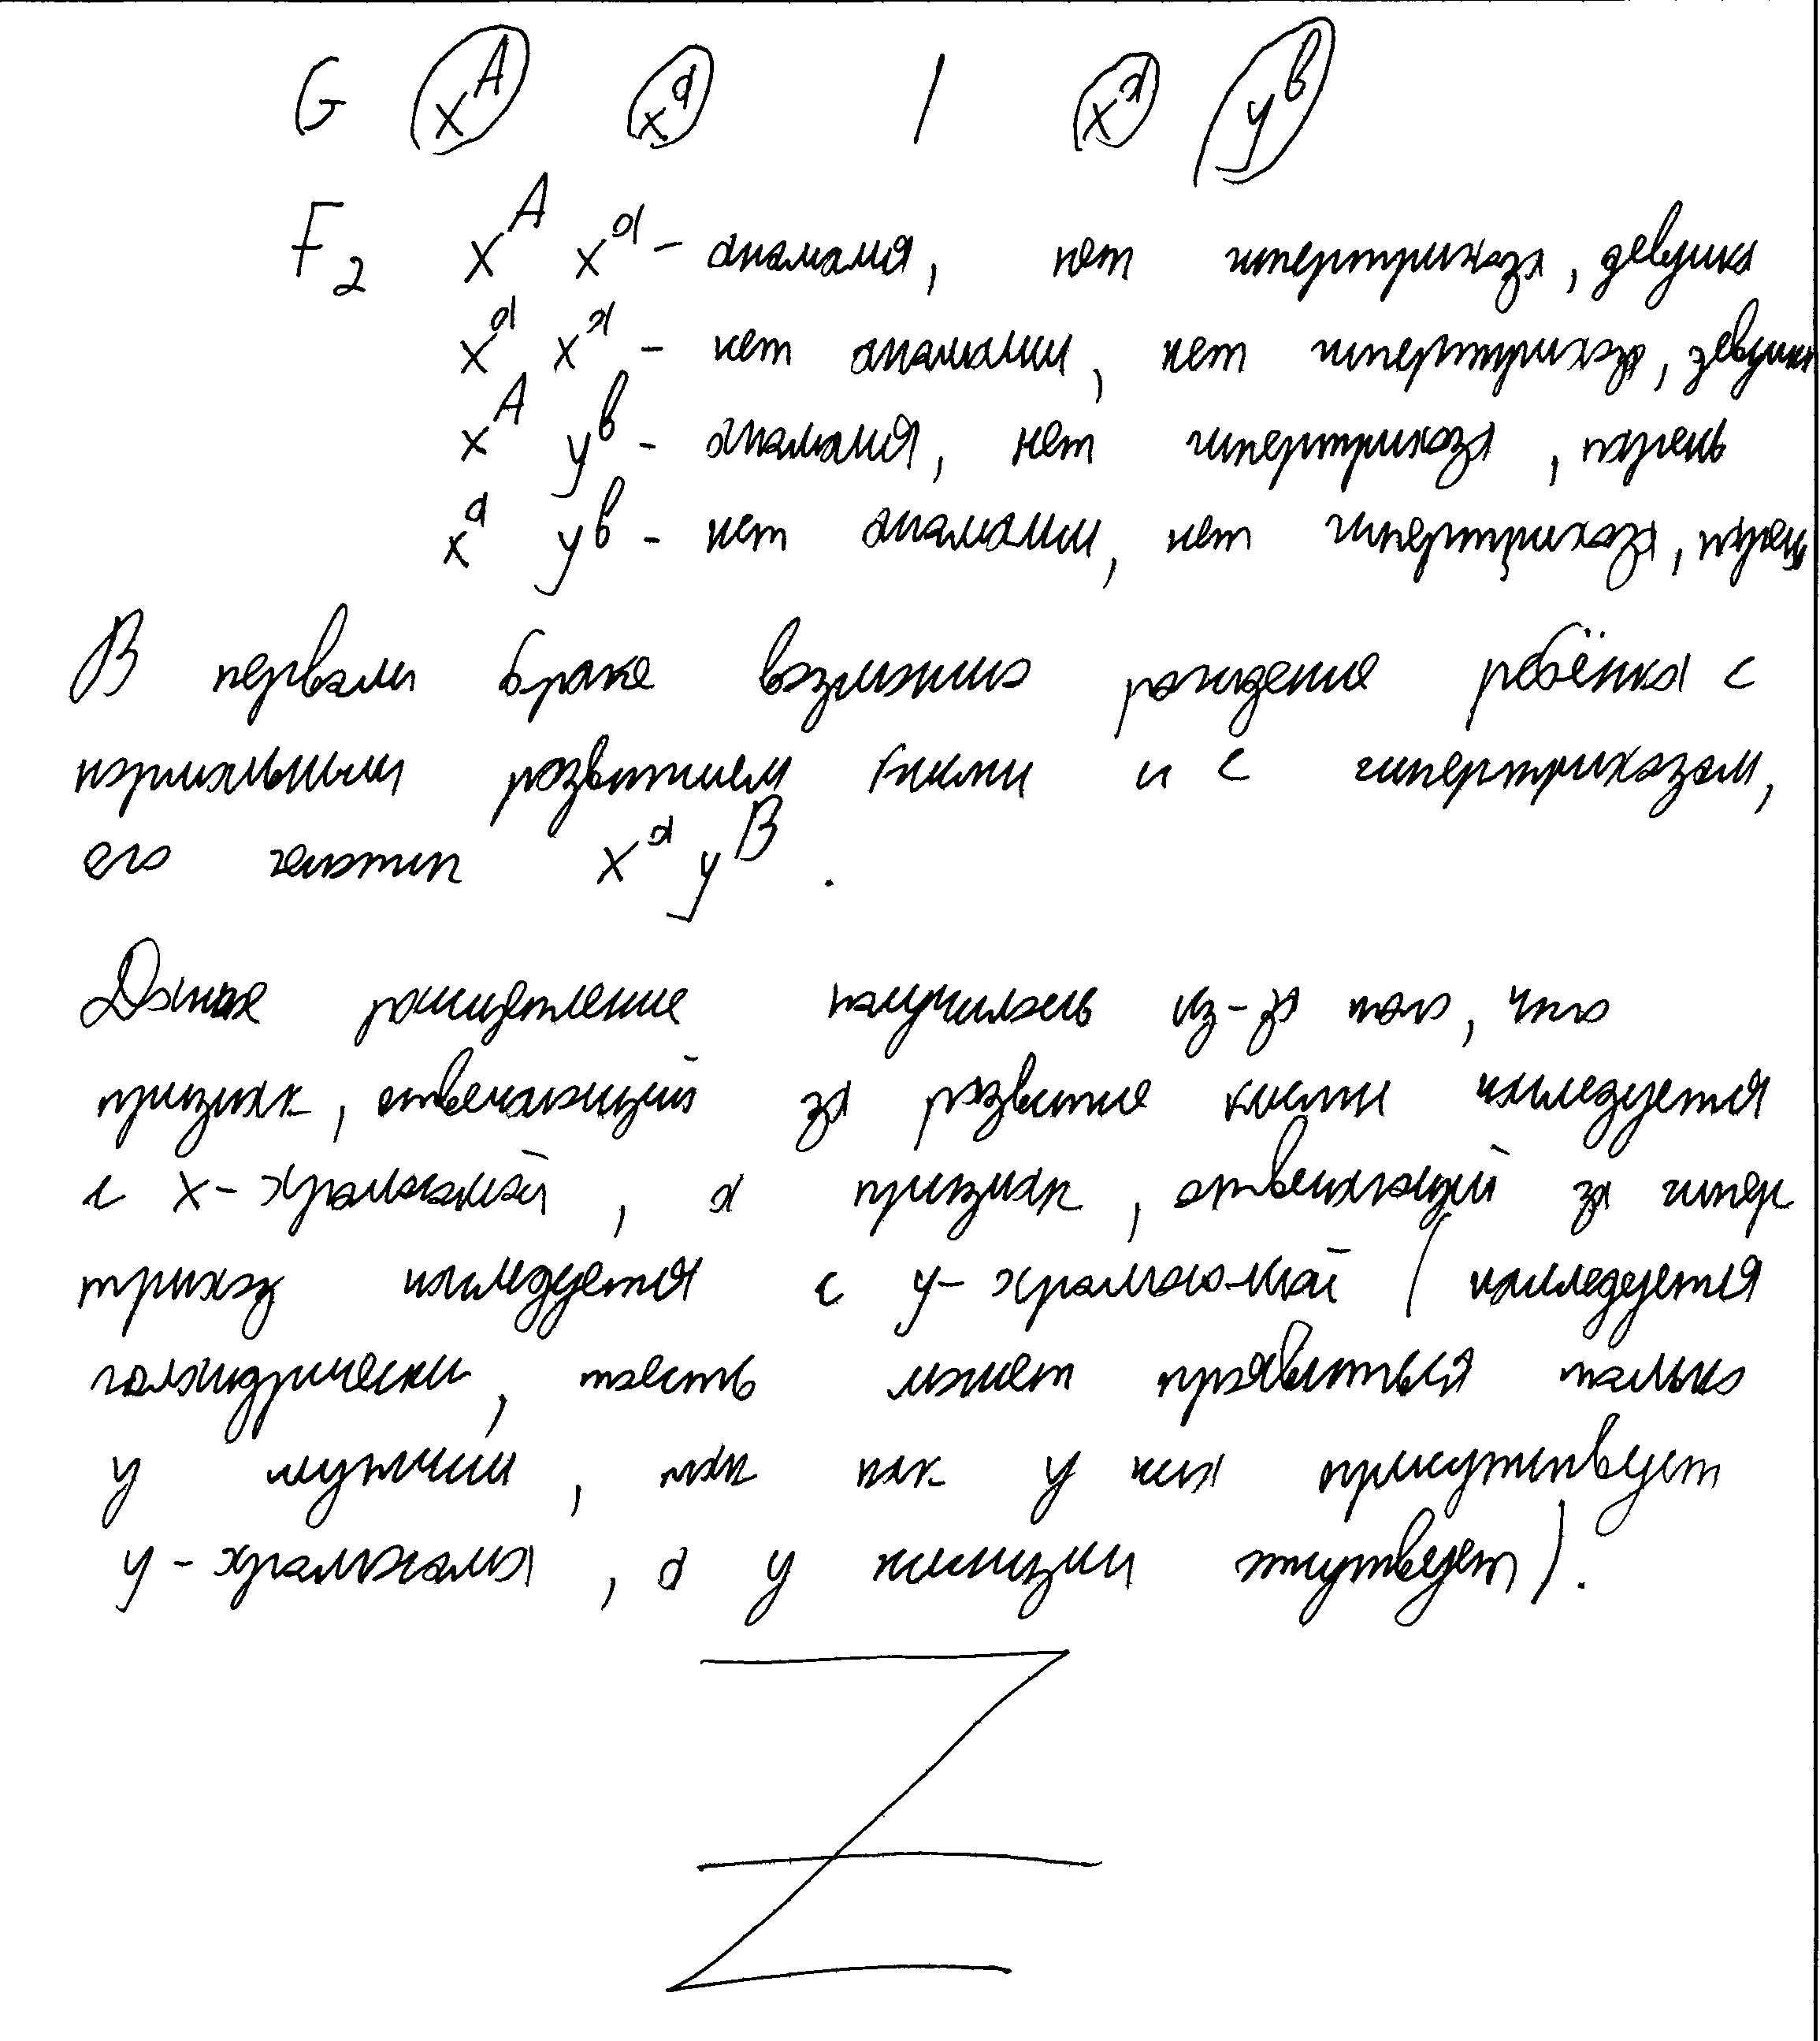 G X^A X^a | X^a Y^b
F2 X^A X^a - аномалия, нет гипертрихоза, девушка
X^a X^a - нет аномалии, нет гипертрихоза, девушка
X^A Y^b - аномалия, нет гипертрихоза, парень
X^a Y^b - нет аномалии, нет гипертрихоза, парень
В первом браке возможно рождение ребёнка с
нормальным развитием кисти и с гипертрихозом,
его генотип X^a Y^B .
Данное расщепление получилось из-за того, что
признак, отвечающий за развитие кисти наследуется
с X-хромосомой, а признак, отвечающий за гипер
трихоз наследуется с Y-хромосомой (наследуется
голандрически, тоесть может проявиться только
у мужчин, так как у них присутствует
Y-хромосома, а у женщин отсутвует).
Z